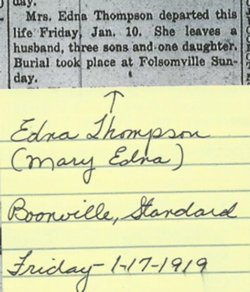 day.
Mrs. Edna Thompson departed this
life Friday, Jan. 10. She leaves a
husband, three sons and one daughter.
Burial took place at Folsomville Sun-
day.
Edna Thompson
(Mary Edna)
Boonville, Standard
Friday-1-17-1919